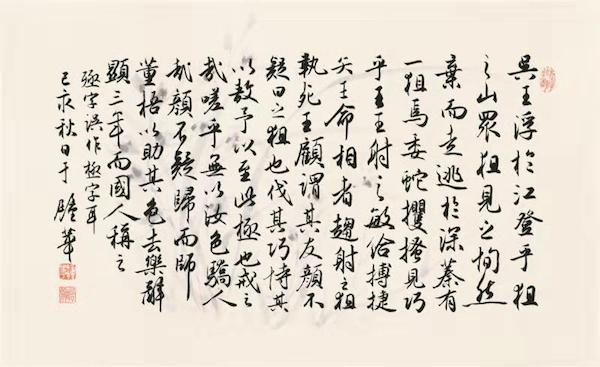 吳王浮於江登乎狙
之山眾狙見之恂然
棄而走逃於深蓁有
一狙焉委蛇攫搔見巧
乎王王射之敏給搏捷
矢王命相者趨射之狙
執死王顧謂其友顏不
疑曰之狙也伐其巧恃其
以敖予以至此極也戒之
哉嗟乎無以汝色驕人
哉顏不疑歸而師
董梧以助其色去樂辭
顯三年而國人稱之
殛字誤作極字耳
己亥秋日于
華